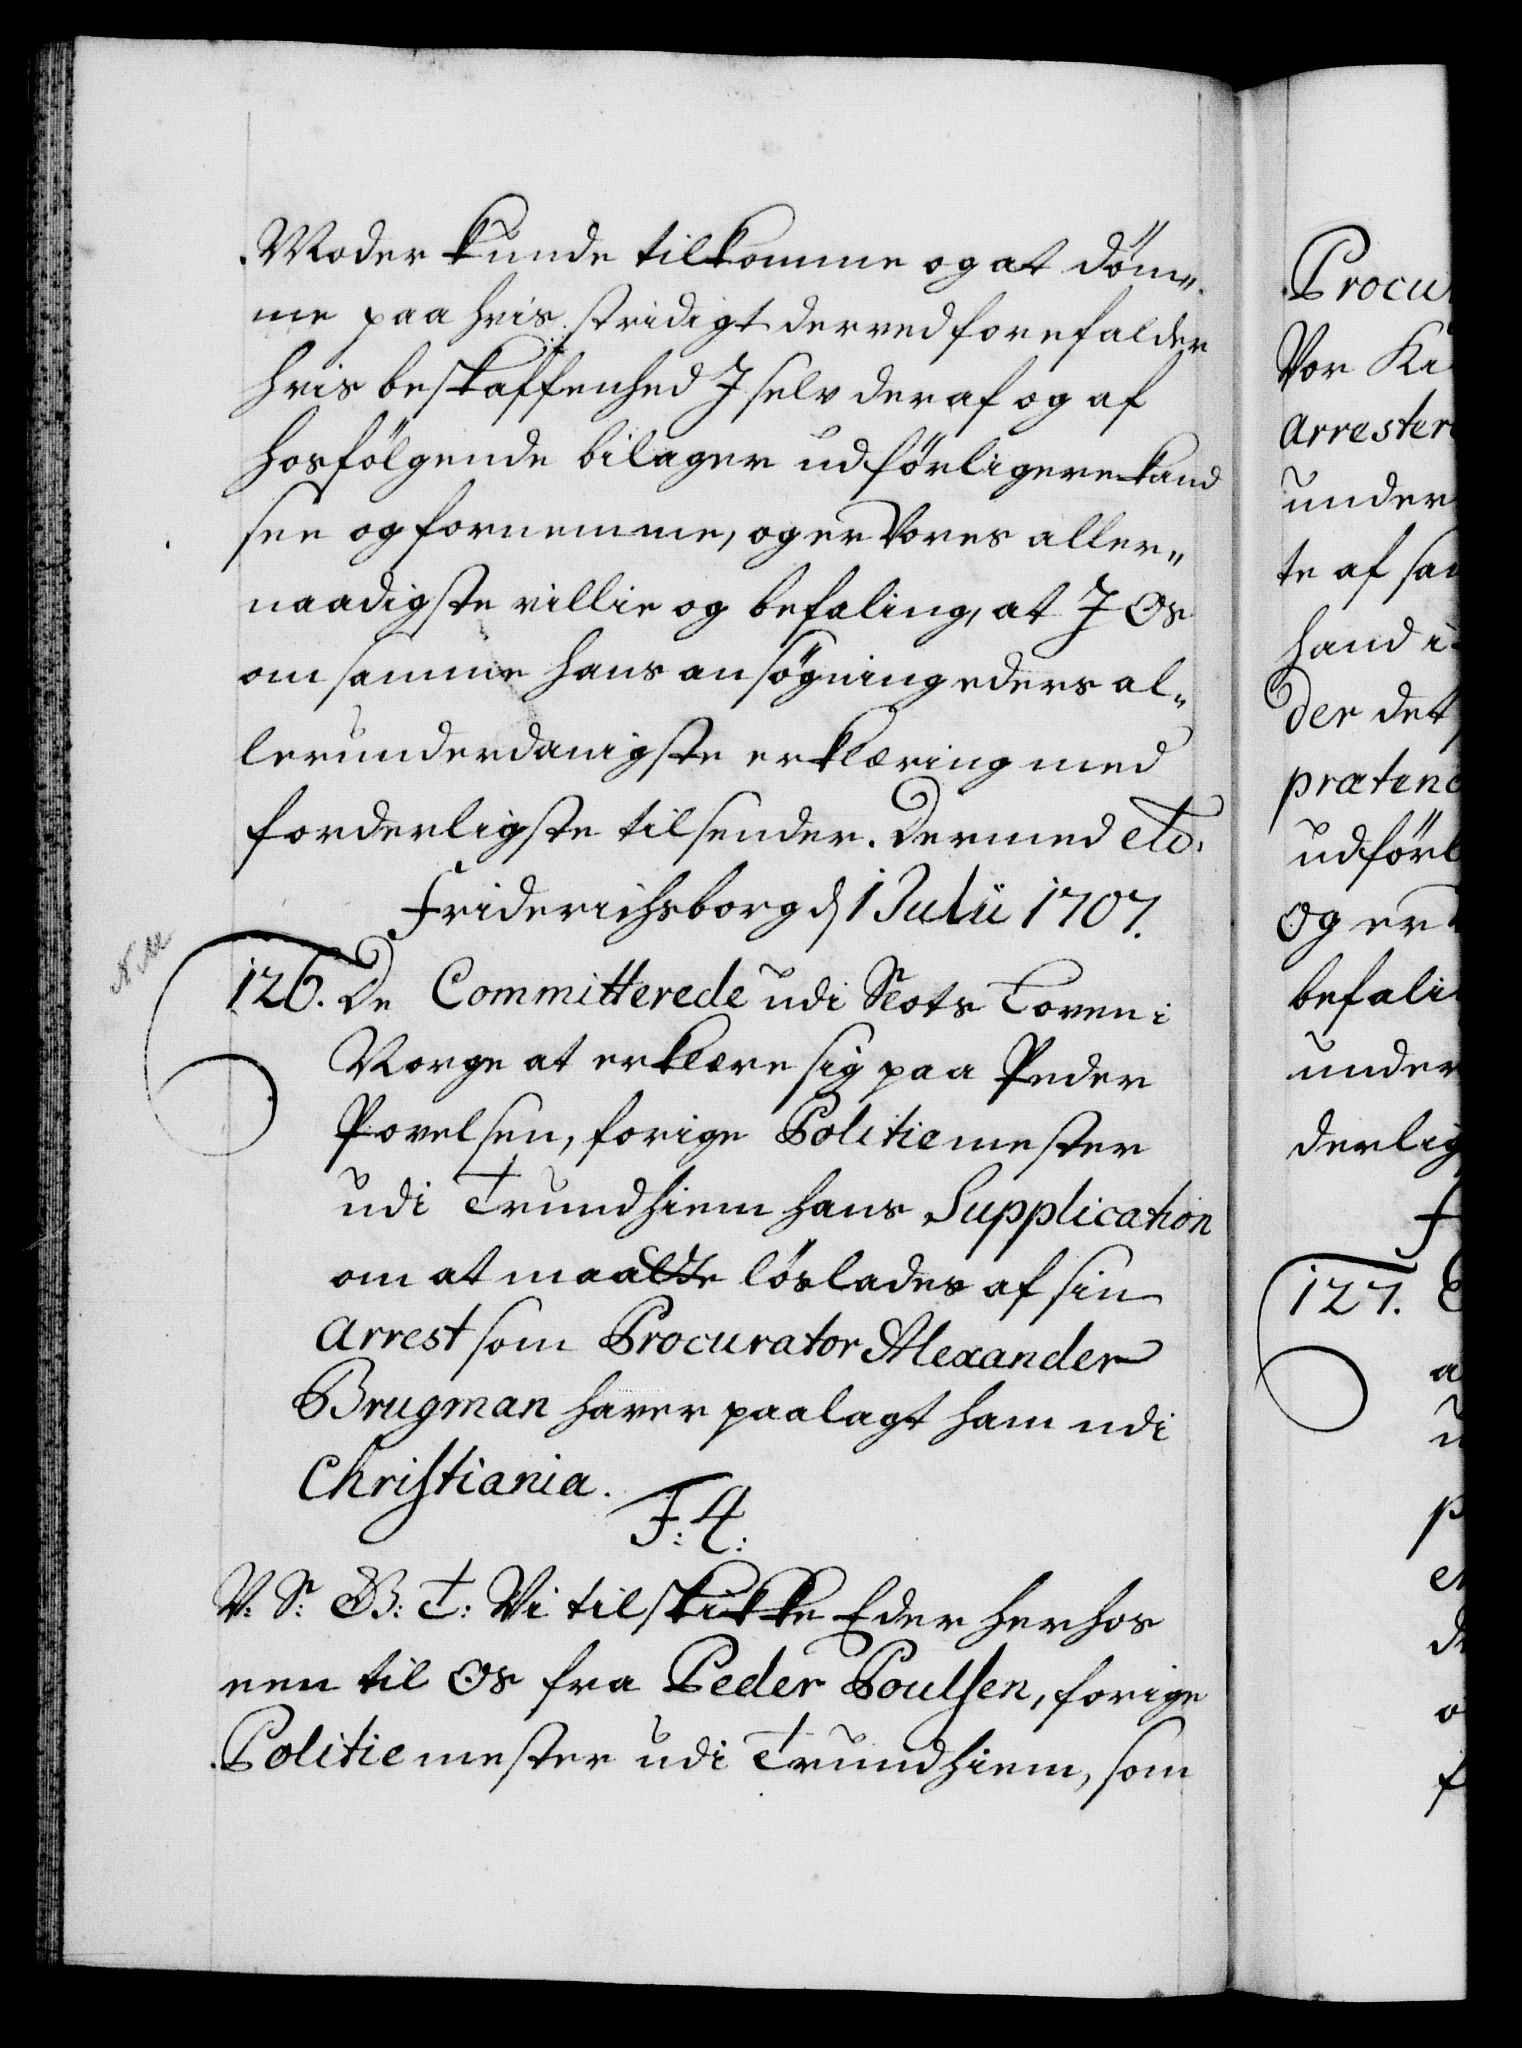 Moder kunde tilkomme og at döm„
me paa hvis stridigt derved forefalder
hvis beskaffenhed I selv deraf og af
hosfölgende bilager udförligere kand
see og fornemme, og er Vores aller„
naadigste villie og befaling, at I Os
om samme hans ansögning eders al„
lerunderdanigste erklæring med
forderligste tilsender. Dermed etc.
Friderichsborg d 1 Julii 1707.
126. De Committerede udi Slots Loven i
Norge at erklære sig paa Peder
Povelsen, forige Politiemester
udi Trundhiem hans Supplication
om at maatte löslades af sin
Arrest som Procurator Alexander
Brugman haver paalagt ham udi
Christiania.
F: 4:
V: S: B: T: Vi tilskikke Eder herhos
een til Os fra Peder Poulsen, forige
Politiemester udi Trundhiem, som
Procu
Vor Ki
arrester
under
te af sa
hand i
der det
prætend
udförl
og er
befali
under
derlig
F
127.